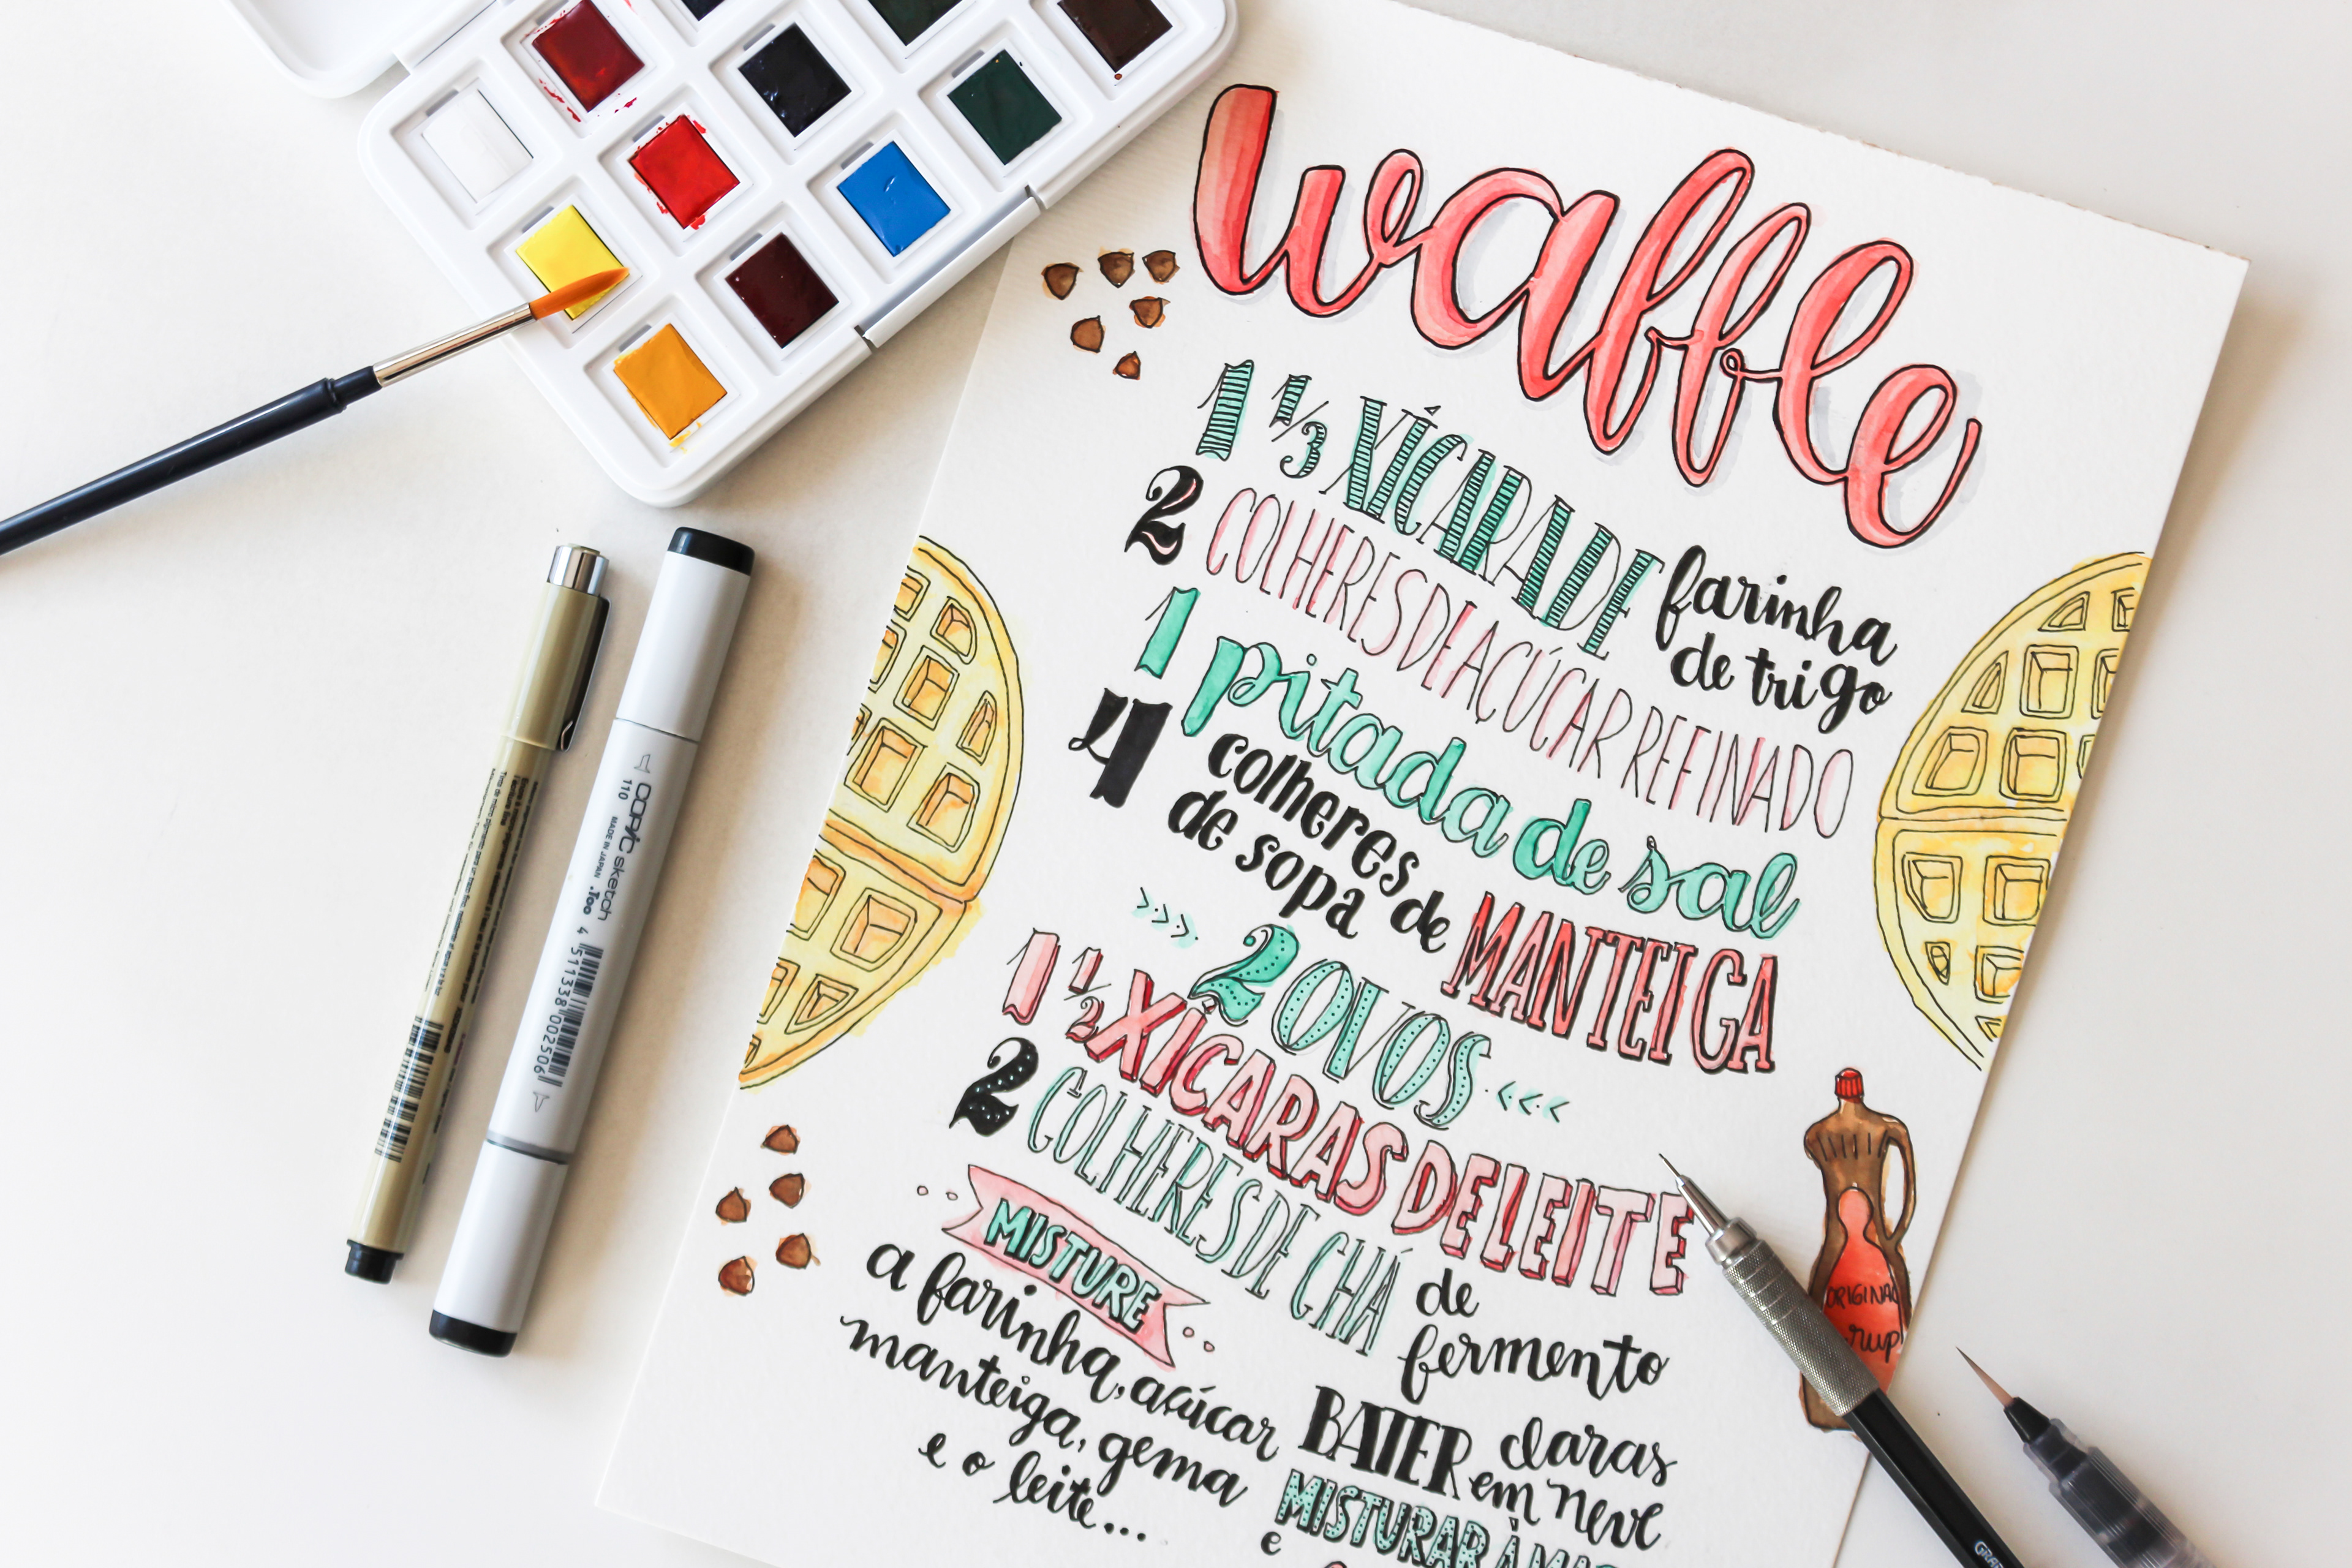 waffle
1 1/3 XÍCARA DE farinha
de trigo
2 COLHERES DE AÇÚCAR REFINADO
1 pitada de sal
4 colheres
de sopa de MANTEIGA
>>>> 2 OVOS <<<<
1 1/2 XÍCARAS DE LEITE
2 COLHERES DE CHÁ de
fermento
MISTURE
a farinha, açúcar
manteiga, gema
e o leite...
BATER claras
em neve
e MISTURAR À
ORIGINAL
COPIC sketch
110
MADE IN JAPAN
.Too
4 511338 002506